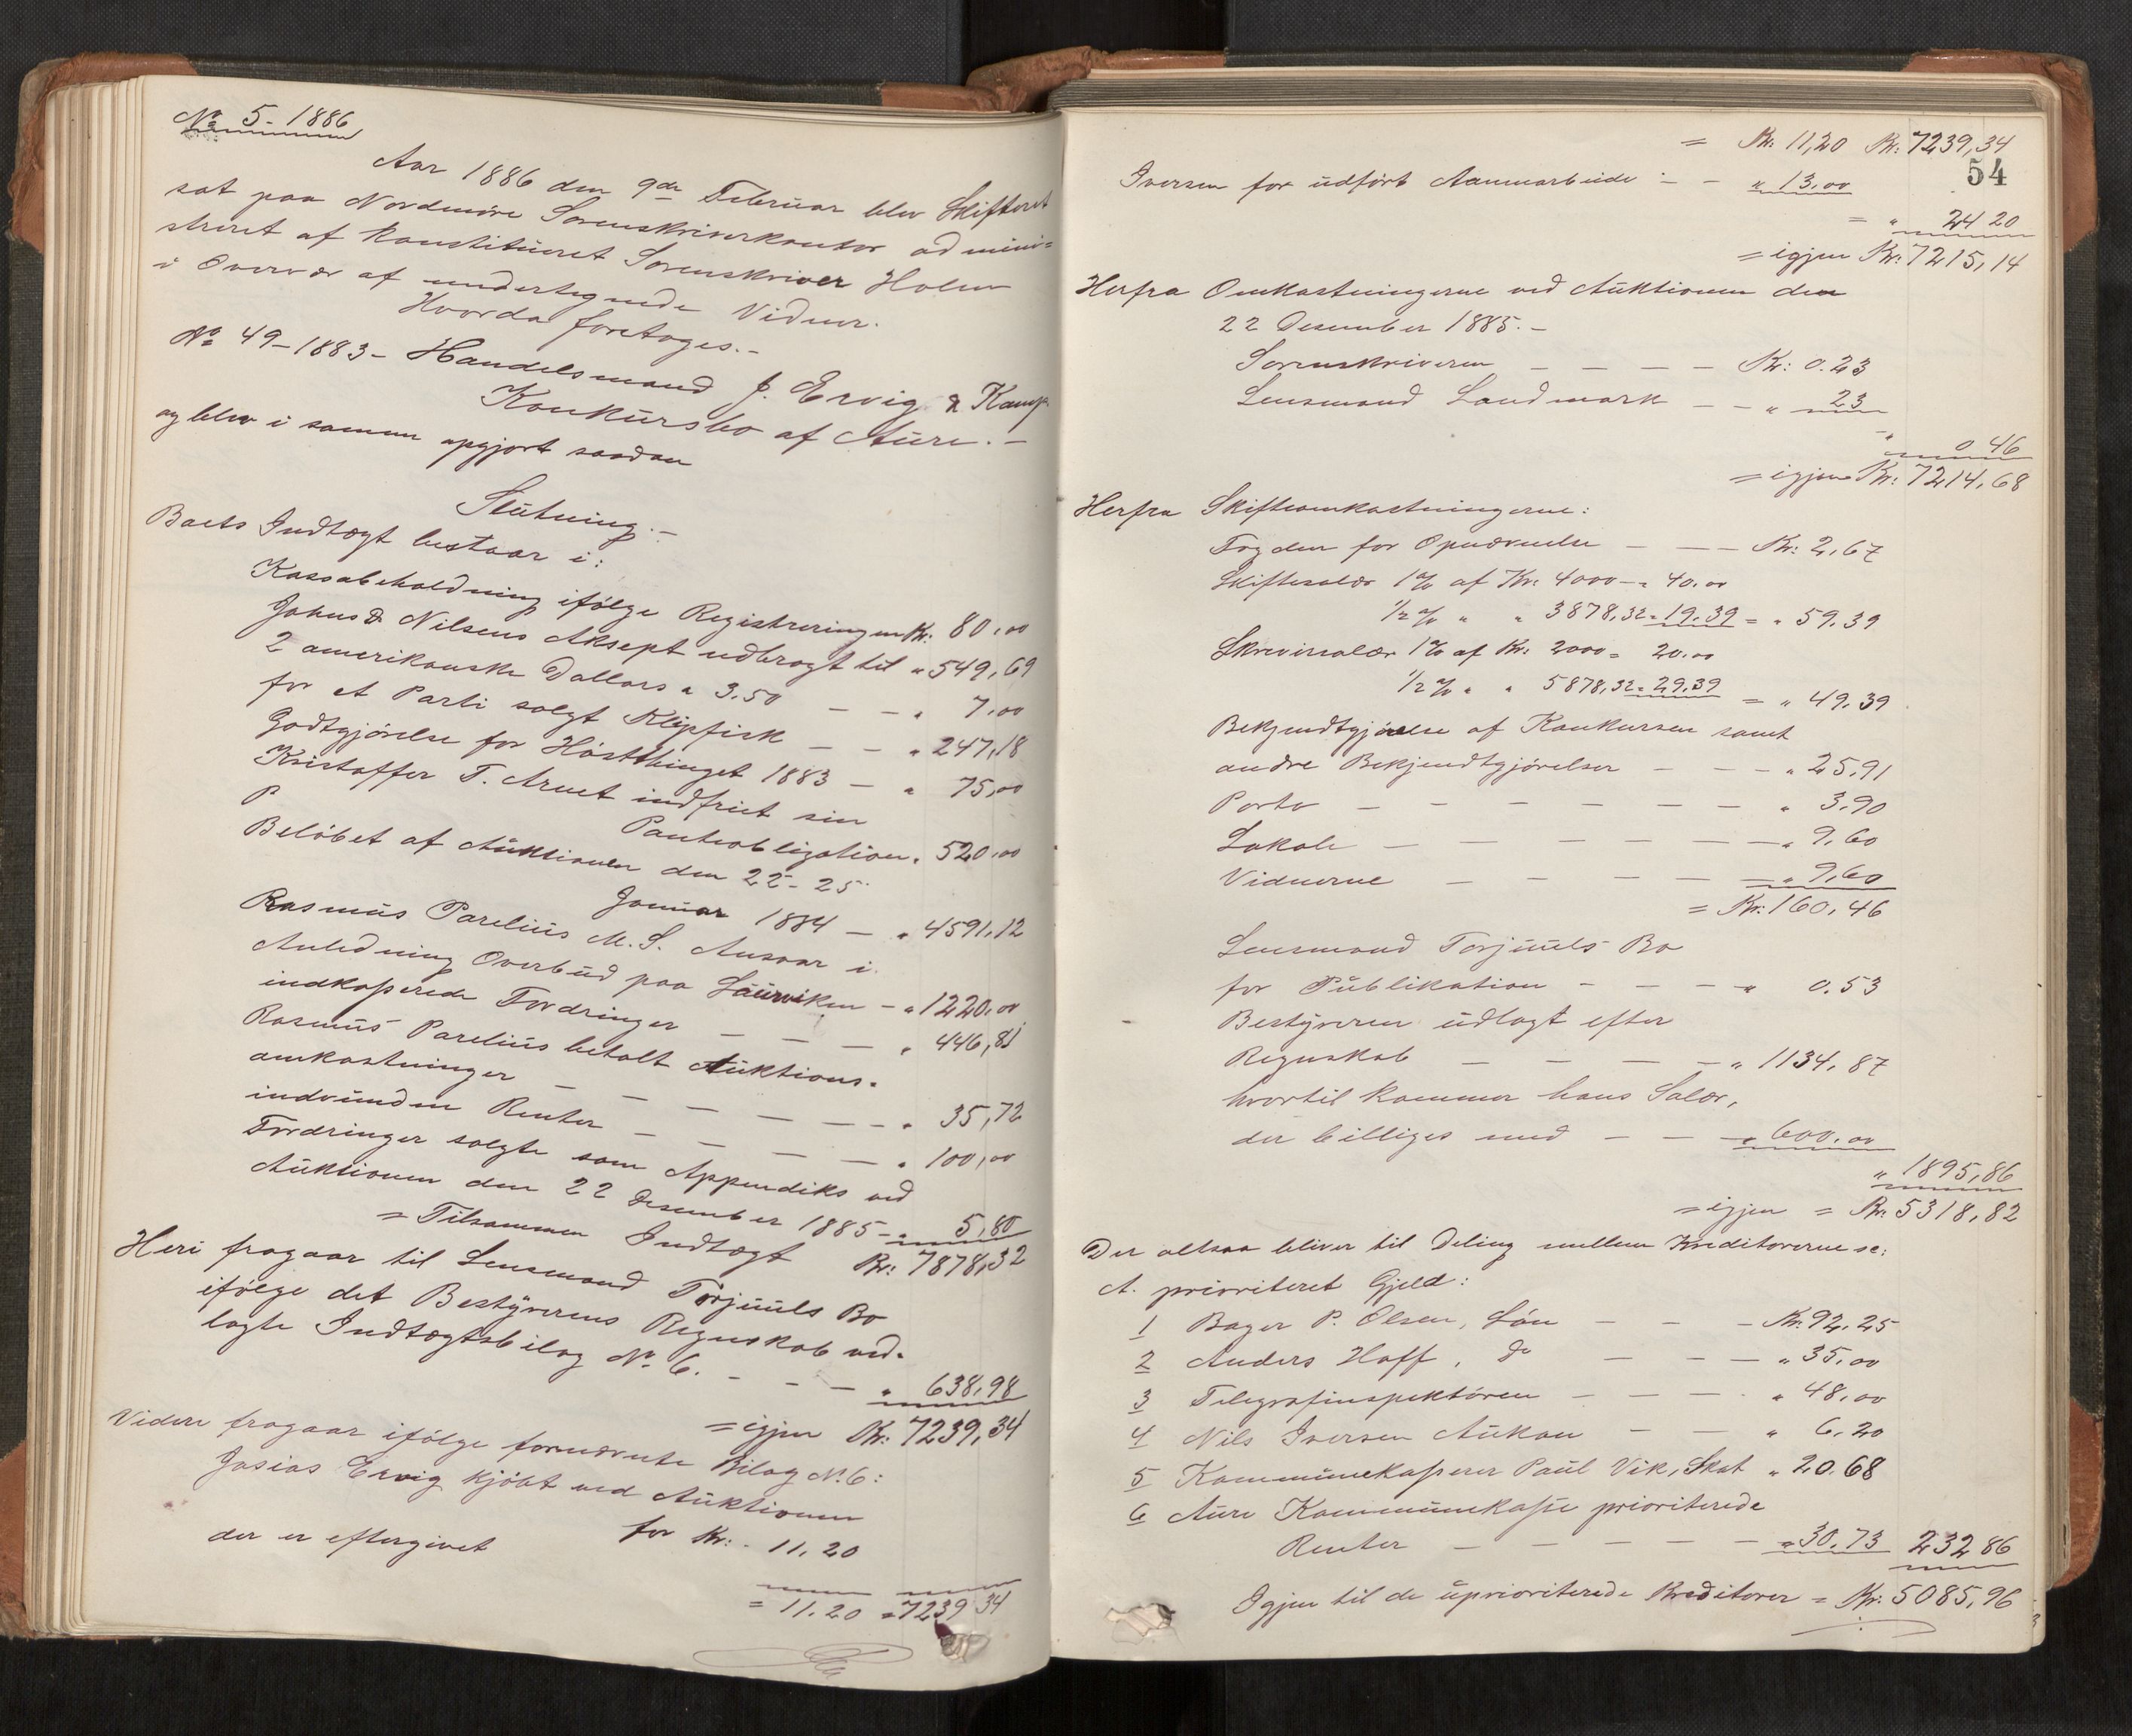 No 5 - 1886
Aar 1886 den 9de Februar blev Skifteret
sat paa Nordmøre Sorenskriverkontor admini=
streret af konstitueret Sorenskriver Holm
i Overvær af undertegnede Vidner.
Hvorda foretoges. -
No 49 - 1883 - Handelsmand J. Ervig & Komp.
Konkursbo af Aure. -
og blev i samme opgjort saadan
Slutning. -
Boets Indtægt bestaar i:
Kassabeholdning ifølge Registreringen Kr: 80,00
Johns & Nilsens Aksept udbragt til " 549,69
2 amerikanske Dollars a 3.50 - - " 7,00
for et Parti solgt Klipfisk - - " 247,18
Godtgjørelse for Høstthinget 1883 - " 75,00
Kristoffer T. Arnet indfriet sin
P
Panteobligation " 520,00
Beløbet af Auktionen den 22 - 25
Januar 1884 - " 4591,12
Rasmus Parelius M. S. Ansvar i
Anledning Overbud paa Laurviken - " 1220,00
indkasserede Fordringer - - - " 446,81
Rasmus Parelius betalt Auktions-
omkostninger - - - - - " 35,72
indvundne Renter - - - - " 100,00
Fordringer solgte som Appendiks ved
Auktionen den 22 Desember 1885 - " 5,80
= Tilsammen Indtægt Kr: 7878,32
Heri fragaar til Lensmand Torjuuls Bo
ifølge det Bestyrerens Regnskab ved-
lagte Indtægtsbilag No 6. - - - " 638,98
= igjen Kr: 7239,34
Videre fragaar ifølge fornævnte Bilag No 6:
Josias Ervig kjøbt ved Auktionen
for Kr: 11.20
der er eftergivet
= 11.20 = 7239 34
54
= Kr: 11,20 Kr: 7239,34
Iversen for udført Aamarbeide - - " 13.00
= " 24 20
= igjen Kr: 7215,14
Herfra Omkostningerne ved Auktionen den
22 Desember 1885. -
Sorenskriveren - - - - Kr: 0.23
Lensmand Landmark - - " 23
" 0.46
= igjen Kr: 7214,68
Herfra Skifteomkostningerne:
Fogden for Opnævnelse - - - Kr: 2,67
Skiftesalær 1% af Kr: 4000 - " 40.00
1/2 % " " 3878,32 " 19.39 = " 59.39
Skriversalær 1% af Kr: 2000 = 20.00
1/2 % " " 5878,32 " 29.39 = " 49.39
Bekjendtgjørelse af Konkursen samt
andre Bekjendtgjørelser - - - " 25,91
Porto - - - - - - - " 3.90
Lokale - - - - - - - " 9.60
Vidnerne - - - - - - " 9,60
= Kr: 160,46
Lensmand Torjuuls Bo
for Publikation - - - - " 0.53
Bestyreren udlagt efter
Regnskab - - - - - " 1134.87
hvortil kommer hans Salær,
der billiges med - - - " 600.00
" 1895,86
= igjen = Kr: 5318,82
Der altsaa bliver til Deling mellem Kreditorerne sc:
A. prioriteret Gjeld:
1 Bager P. Olsen, Løn - - - Kr. 92,25
2 Anders Hoff, do - - - " 35,00
3 Telegrafinspektøren - - - " 48,00
4 Nils Iversen Aukan - - " 6.20
5 Kommunekasserer Paul Vik, Skat " 20.68
6 Aure Kommunekasse prioriterede
Renter - - - - - " 30.73 232 86
Igjen til de uprioriterede Kreditorer = Kr: 5085,96